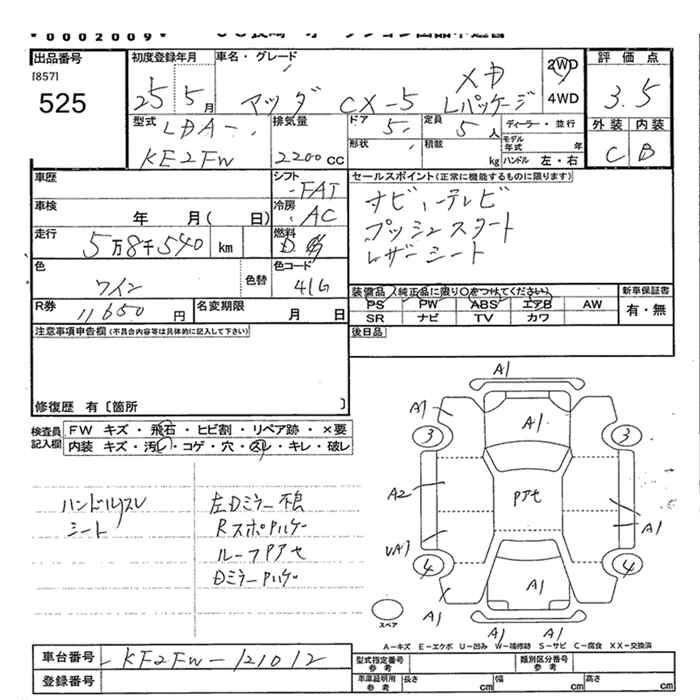 0002009
出品番号
[857]
525
初度登録年月
25 5月
車名・グレード
マツダ CX-5 XD Lパッケージ
2WD
4WD
評価点
3.5
型式
LDA-
KE2FW
排気量
2200 CC
ドア
5
形状
定員
5人
積載
kg
ディーラー・並行
モデル年式 年
ハンドル 左・右
外装 内装
C B
車歴
シフト
FAT
セールスポイント(正常に機能するものに限ります)
ナビ、テレビ
プッシュスタート
レザーシート
車検
年 月( 日)
冷房
AC
走行
5万8千540 km
燃料
色
ワイン
色替
色コード
41G
装備品(純正品に限り○をつけてください)
PS PW ABS エアB AW
SR ナビ TV カワ
新車保証書
有・無
R券
11650円
名変期限
月 日
後日品
注意事項申告欄(不具合内容等は具体的に記入して下さい)
修復歴 有〔箇所 〕
検査員記入欄
FW キズ・飛石・ヒビ割・リペア跡・×要
内装 キズ・汚レ・コゲ・穴・スレ・キレ・破レ
ハンドルスレ
シート
左Dミラー不良
ルーフPアセ
A1
A1
A1
3
3
A2
Pアセ
A1
4
4
A1
A1
A1
A1
A1
スペア
A-キズ E-エクボ U-凹み W-補修跡 S-サビ C-腐食 XX-交換済
車台番号
KE2FW-121012
登録番号
型式指定番号 参考
類別区分番号 参考
車庫証明用 参考
長さ cm
幅 cm
高さ cm